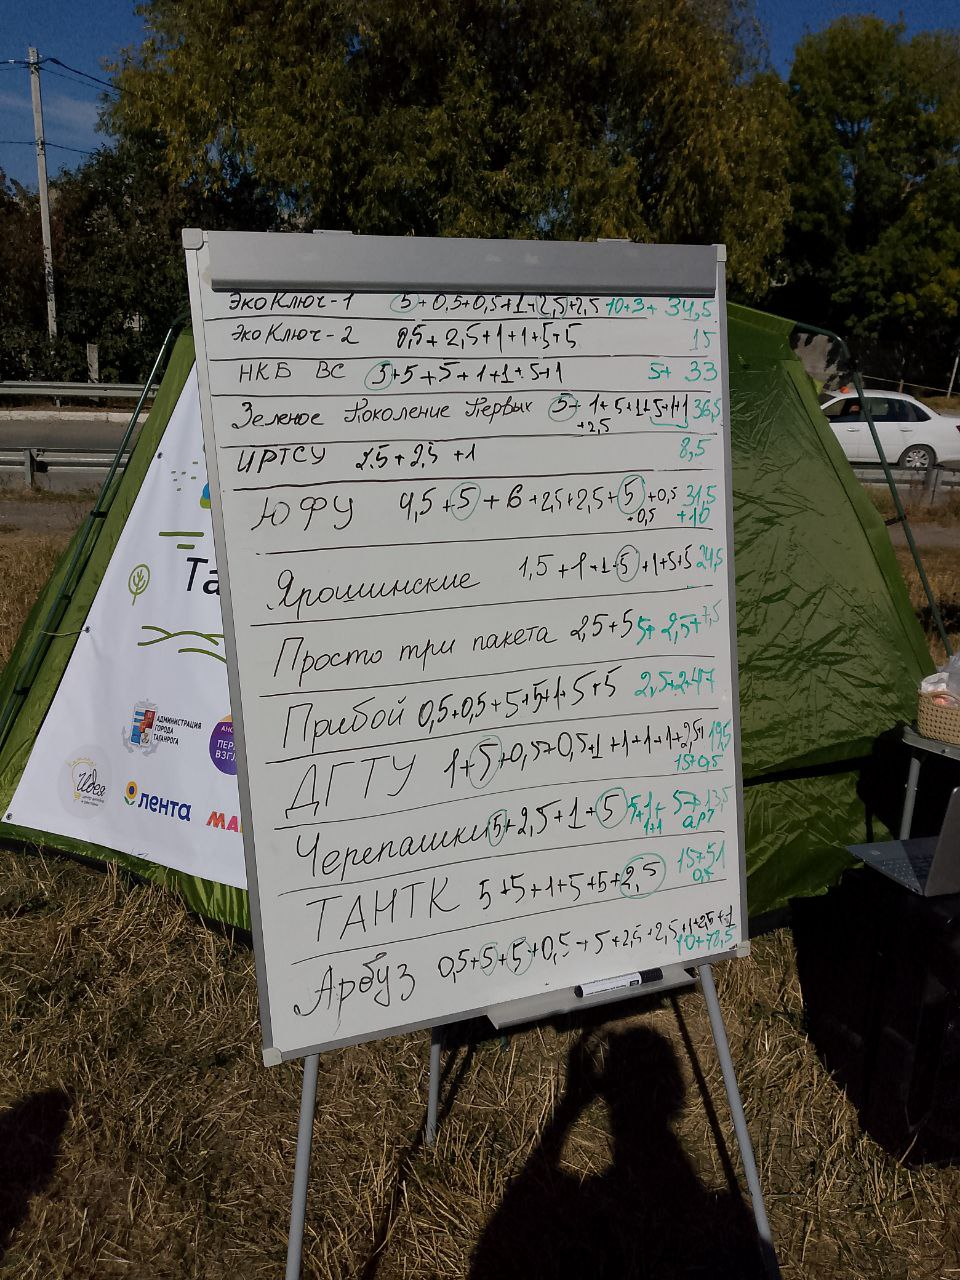 ЭкоКлюч-1 5+0,5+0,5+1+2,5+2,5 10+3+ 34,5
ЭкоКлюч-2 0,5+2,5+1+1+5+5 15
НКБ ВС 5+5+5+1+1+5+1 5+ 33
Зеленое Поколение Первых 5+1+5+1+5+1+1 36,5
+2,5
ИРТСУ 2.5+2,5+1 8,5
ЮФУ 4,5+5+6+2,5+2,5+5+0,5 31,5
+0,5 +10
Ярошинские 1,5+1+1+5+1+5+5 24,5
Просто три пакета 2,5+5 5+2,5+7,5
Прибой 0,5+0,5+5+5+1+5+5 2,5+2+47
ДГТУ 1+5+0,5+0,5+1+1+1+1+2,5+1 19,5
15+0,5
Черепашки 5+2,5+1+5 5+1+ 5+13,5
1+1 арт
ТАНТК 5+5+1+5+5+2,5 15+51
0,5
Арбуз 0,5+5+5+0,5+5+2,5+2,5+1+2,5+1
10+78,5
Та
АДМИНИСТРАЦИЯ
ГОРОДА
ТАГАНРОГА
ПЕР
ВЗГЛ
Идея
лента
МА